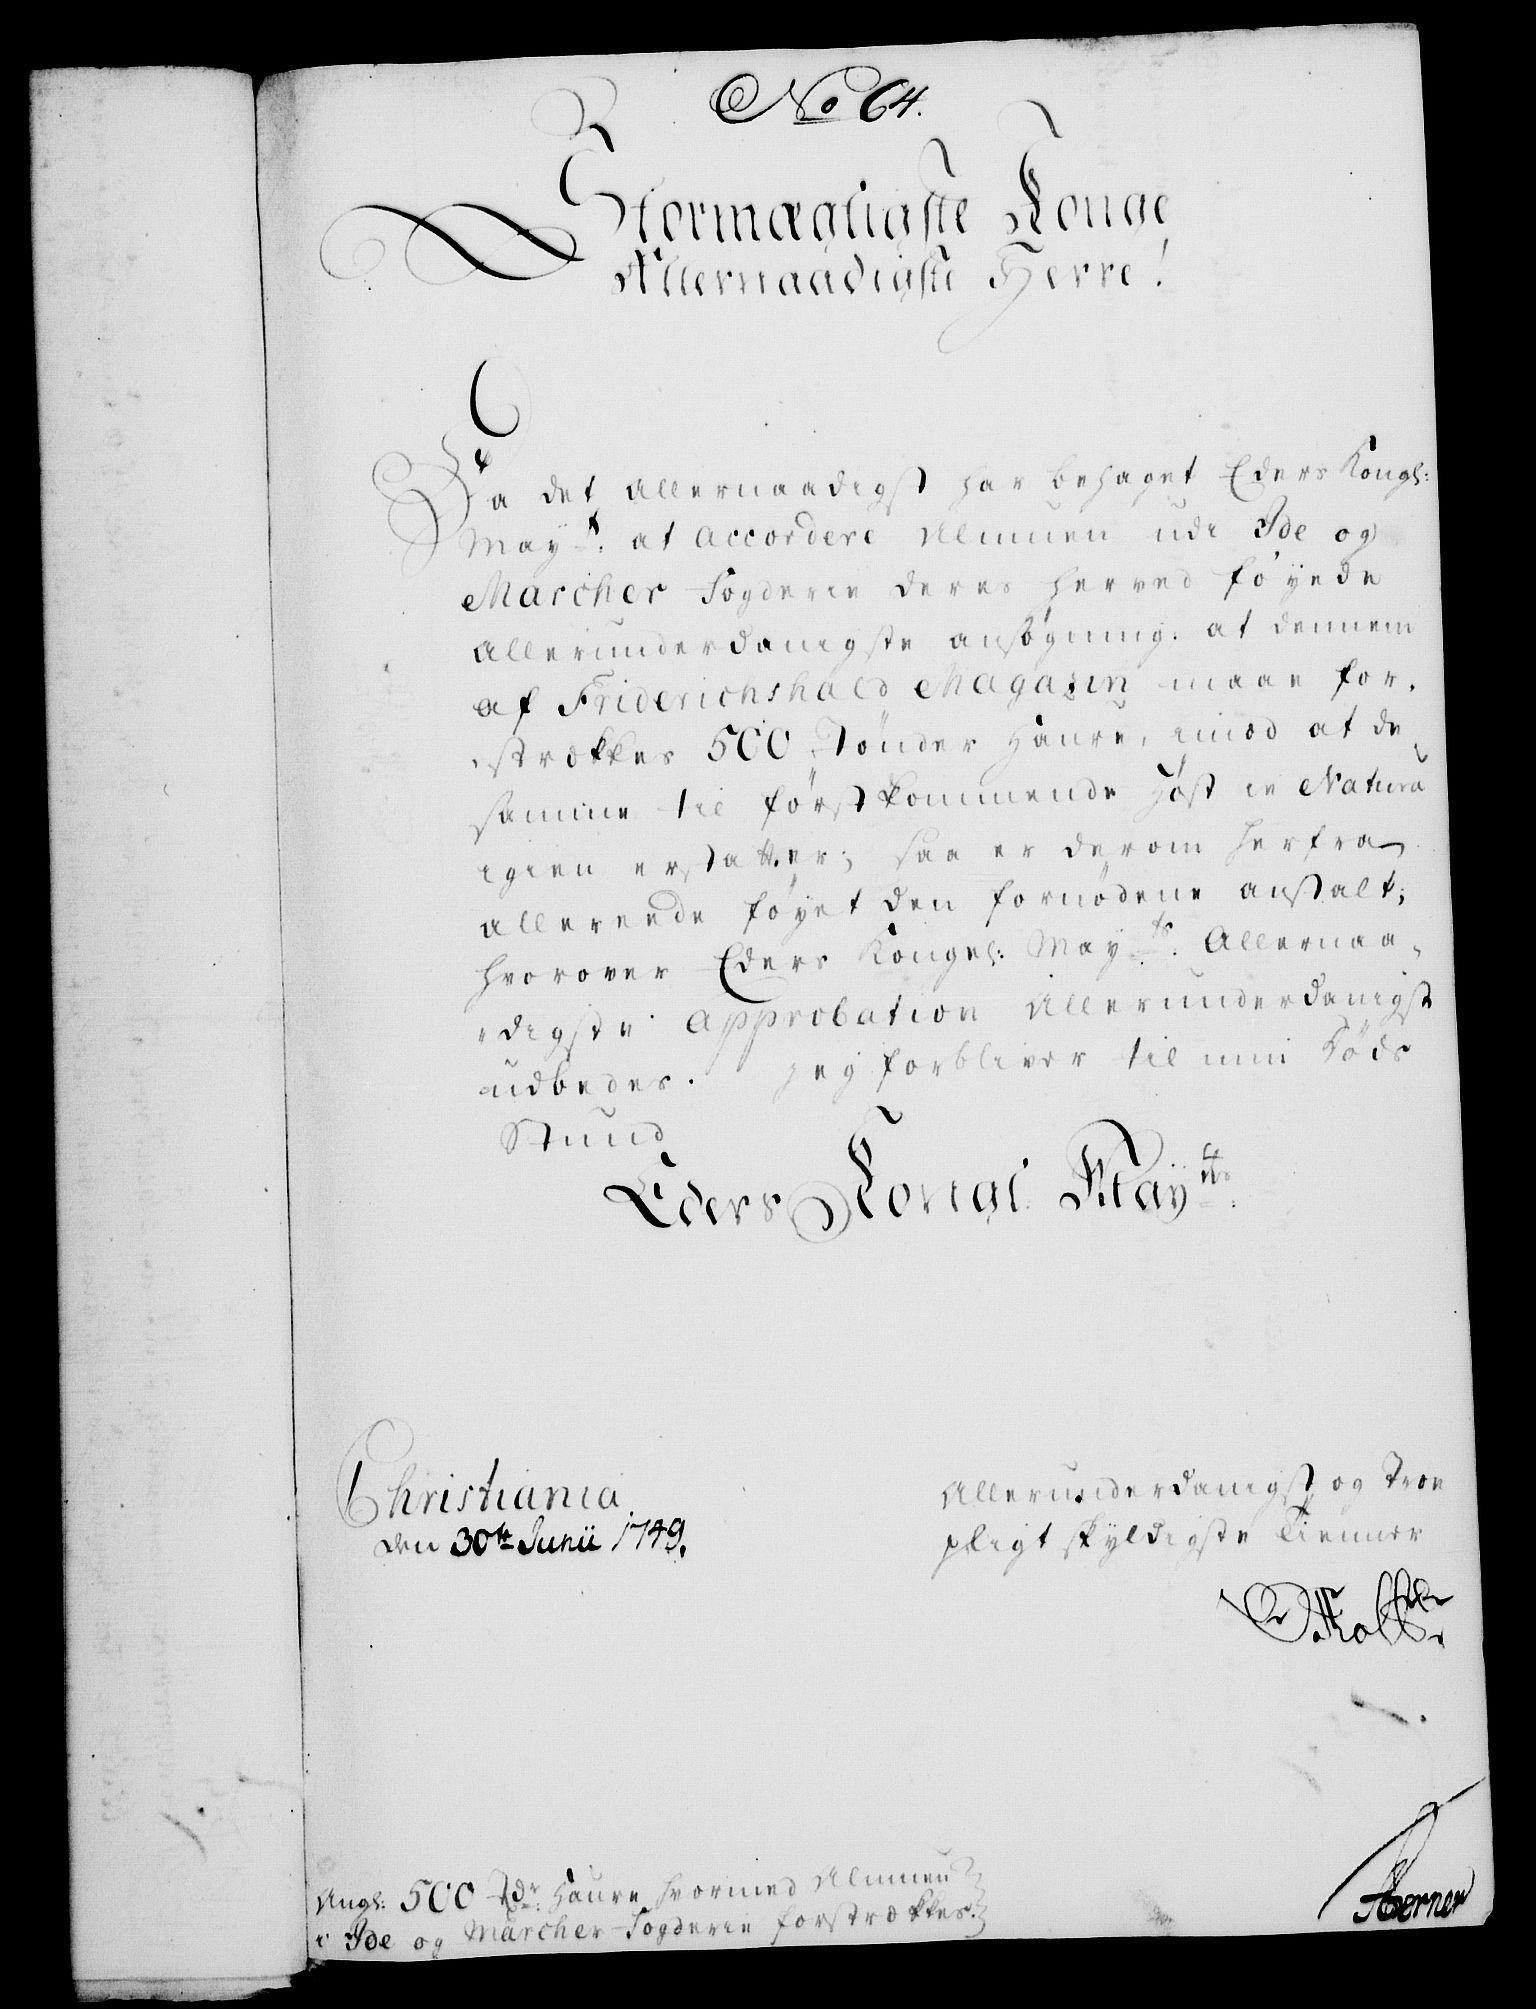 No 64.
Stormægtigste Konge
Allernaadigste Herre!
Da det Allernaadigst har behaget Eders Kongl:
May:t. at accordere Almuen udi Ide og
Marcher Fogderie deres herved føyede
allerunderdanigste ansøgning. at dennem
af Friderichshald Magazin maae for-
strækkes 500 Tønder Haure, imod at de
samme til førstkommende Høst in Natura
igien erstatter; saa er derom herfra
allereede føyet den fornødene anstalt;
hvorover Eders Kongel: May:ts. Allernaa-
digste Approbation Allerunderdanigst
udbedes. Jeg forbliver til min Døds
Stund
Eders Kongl. May:ts
Christiania
den 30te Junii 1749.
Allerunderdanigst og Troe
pligt skyldigste Tienner
Ang: 500 Tdr: Haure hvormed Almuen
i Ide og Marcher Fogderie forstrækkes.